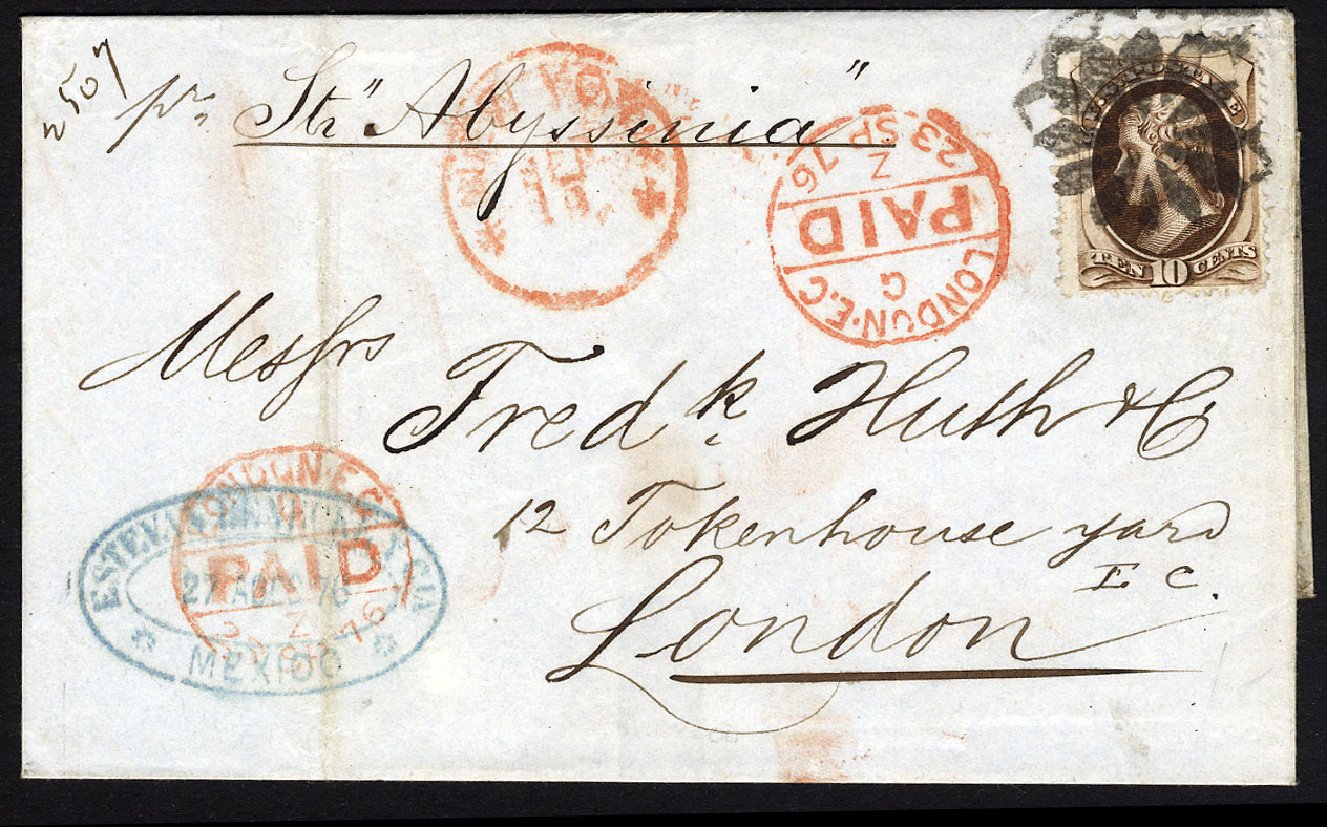 2507
pr Str "Abyssinia"
NEW YORK
LONDON·E.C
PAID
G
Z
23 SP 76
U.S. POSTAGE
TEN 10 CENTS
Messrs
Fredk. Huth & Co
12 Tokenhouse yard
E C.
London
LONDON·E.C
PAID
Z
76
ESTEVAN Y CIA
27 76
MEXICO